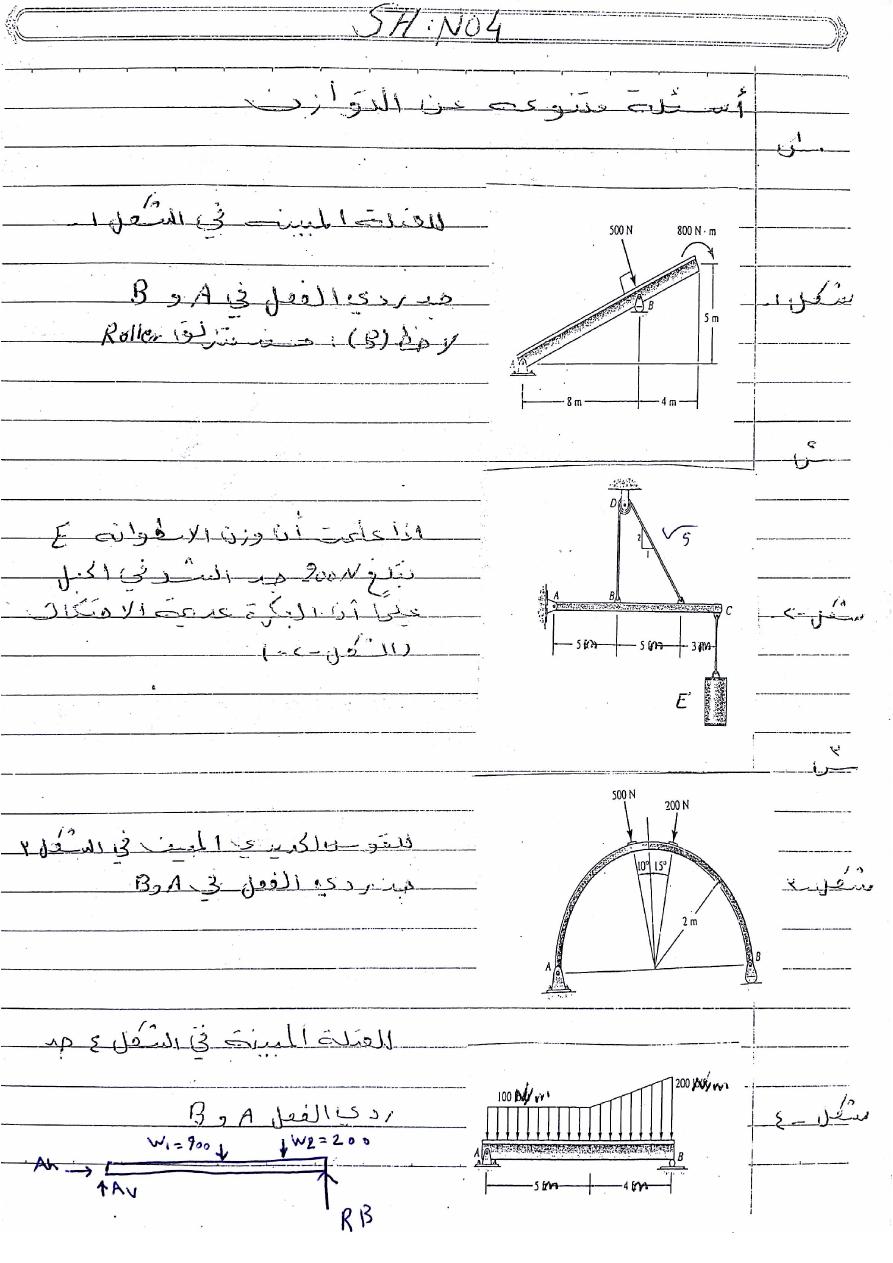 SH:NO4
أسئلة متنوعة عن التوازن
س١
للعتلة المبينة في الشكل ١-
جد ردي الفعل في A و B
لاحظ (B) : مسند منزلق Roller
شكل ١-
500 N
800 N · m
B
A
5 m
8 m
4 m
س٢
اذا علمت أن وزن الاسطوانة E
تبلغ 200N جد الشد في الحبل
علماً أن البكرة عديمة الاحتكاك
(الشكل -٢-)
شكل -٢
D
2
1
√5
A
B
C
5 m
5 m
3 m
E
س٣
للقوس الدائري المبين في الشكل ٣
جد ردي الفعل في A و B
شكل -٣
500 N
200 N
10°
15°
2 m
A
B
للعتلة المبينة في الشكل ٤ جد
ردي الفعل A و B
شكل -٤
100 N/m
200 N/m
A
B
5 m
4 m
W1=900
W2=200
Ah
Av
RB